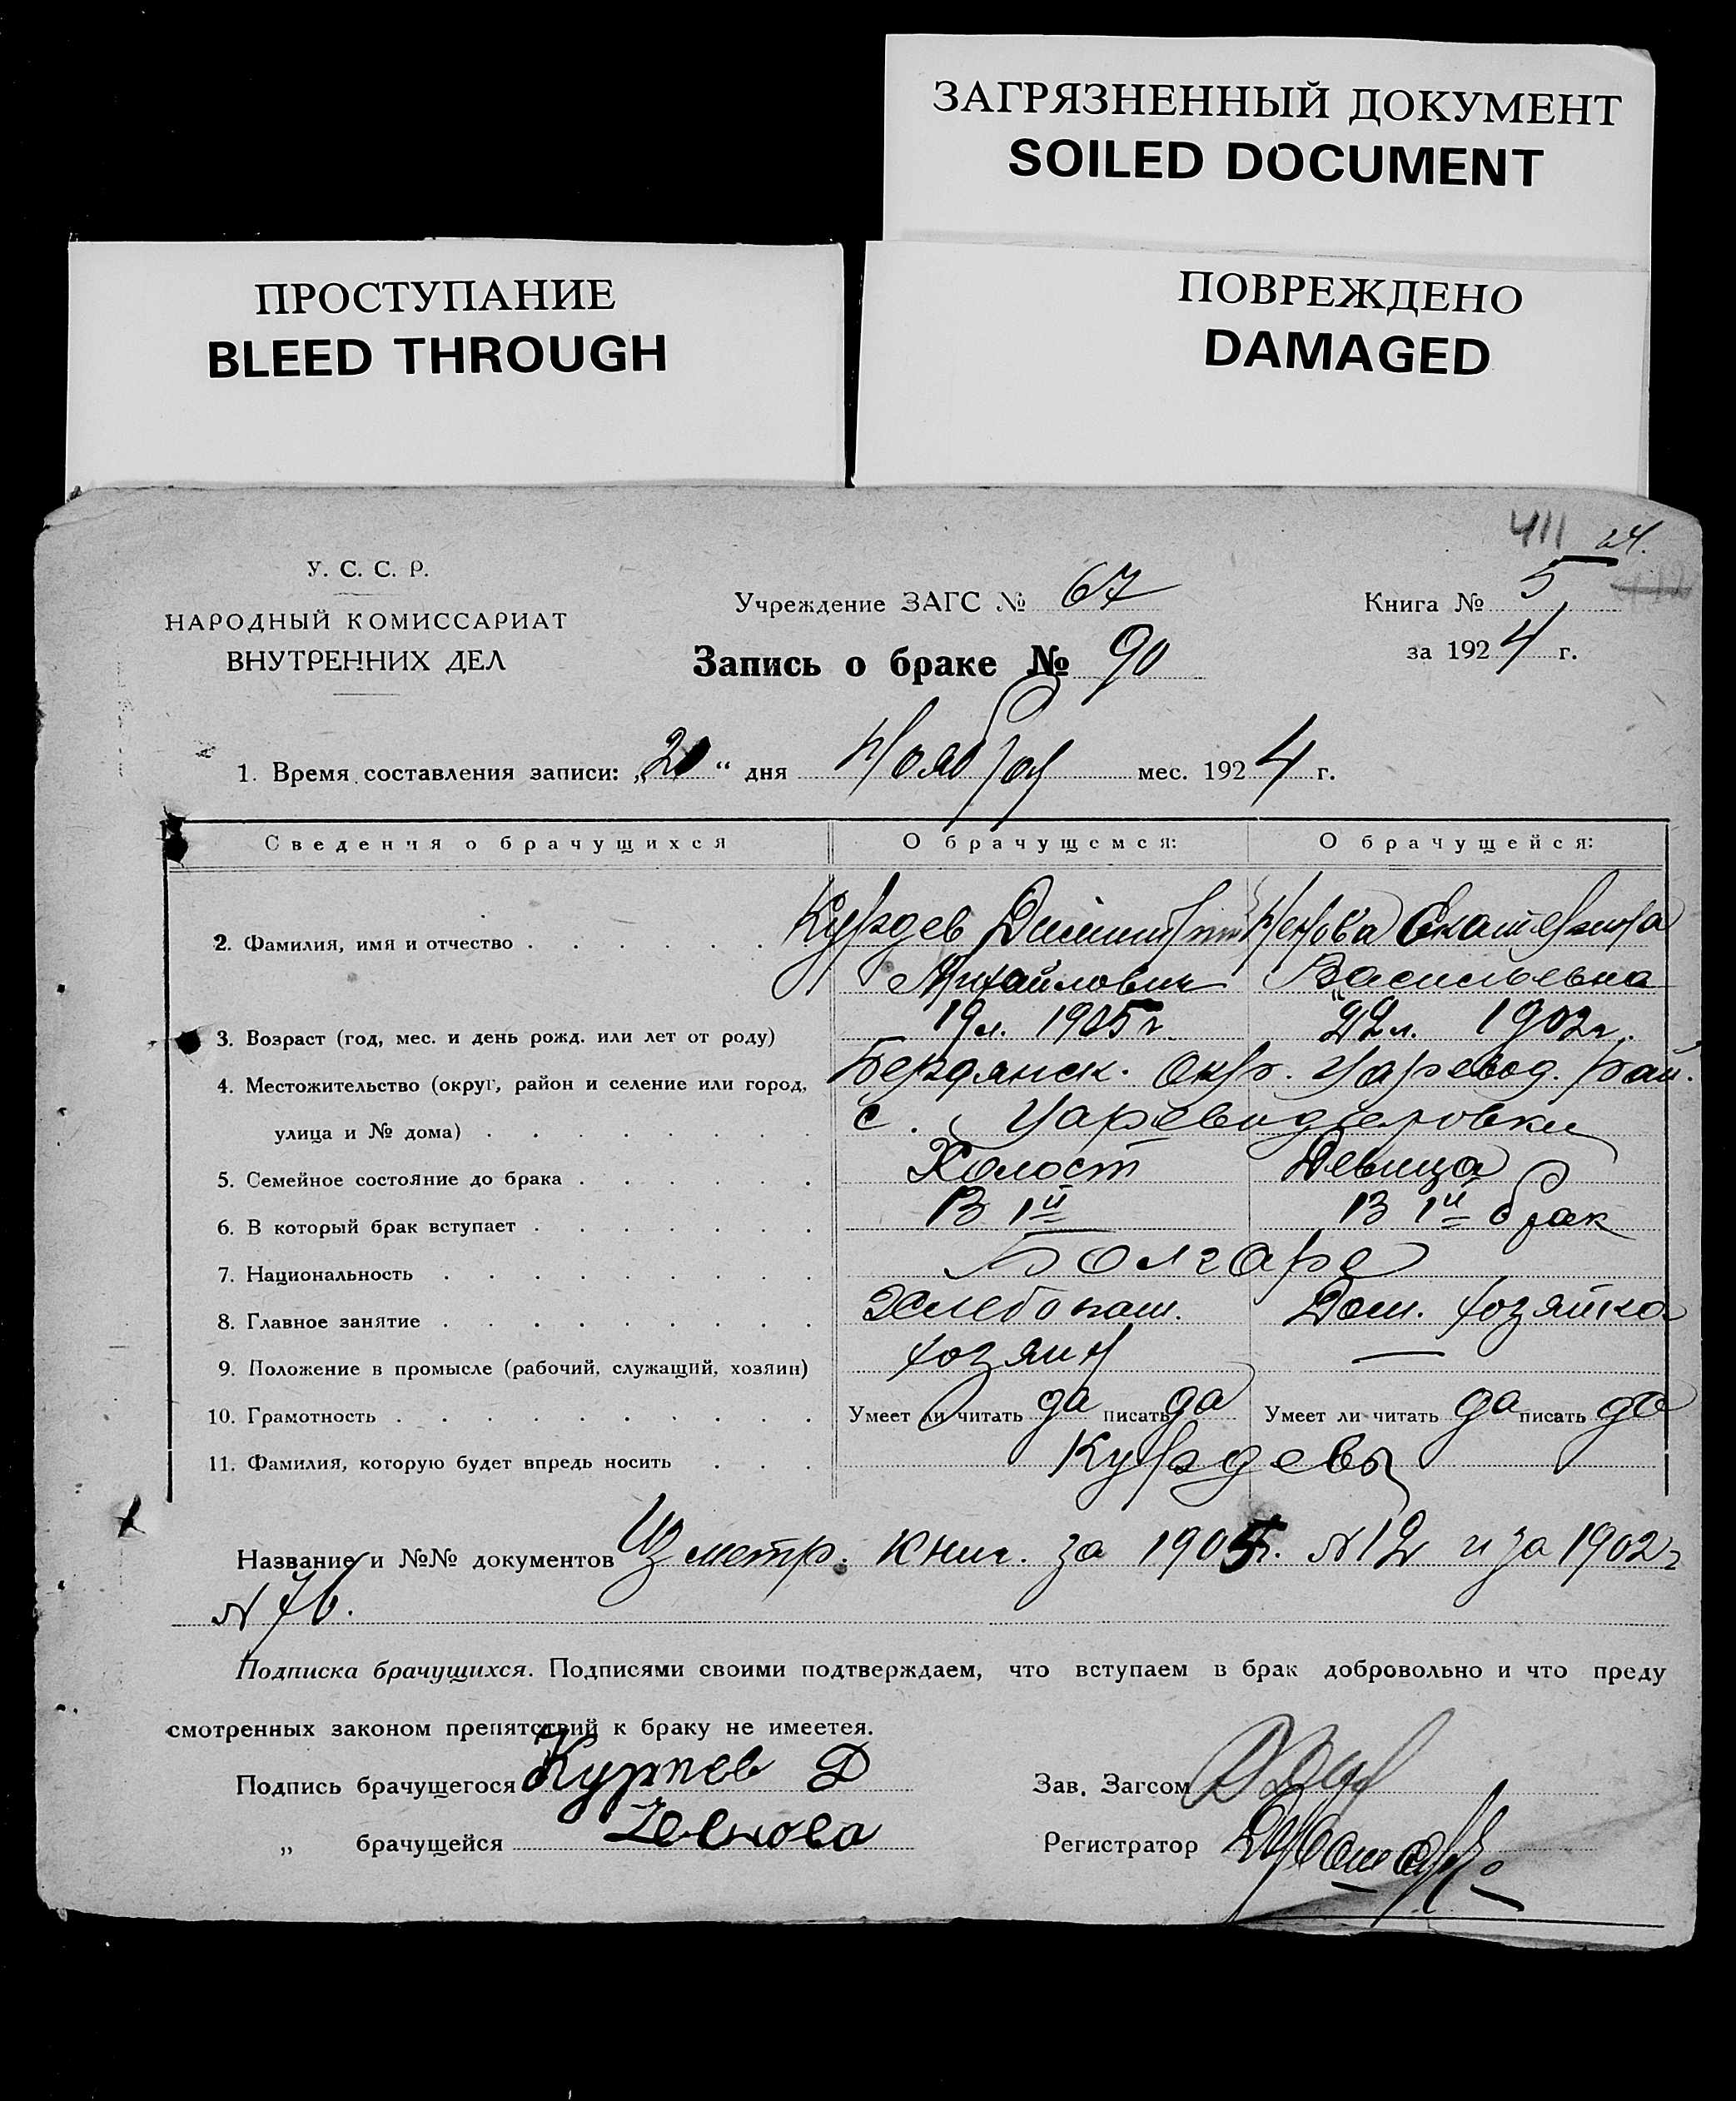 ЗАГРЯЗНЕННЫЙ ДОКУМЕНТ
SOILED DOCUMENT
ПРОСТУПАНИЕ
BLEED THROUGH
ПОВРЕЖДЕНО
DAMAGED
411 24.
У. С. С. Р.
НАРОДНЫЙ КОМИССАРИАТ
ВНУТРЕННИХ ДЕЛ
Учреждение ЗАГС № 67
Запись о браке № 90
Книга № 5
за 1924 г.
1. Время составления записи: „20“ дня Ноября мес. 1924 г.
Сведения о брачущихся О брачущемся: О брачущейся:
2. Фамилия, имя и отчество Курдев Димитрий Екатерина
Михайлович Васильевна
3. Возраст (год, мес. и день рожд. или лет от роду) 19 л. 1905 г. 22 л. 1902 г.
4. Местожительство (округ, район и селение или город, Бердянск. Окр. Царевод. Рай.
улица и № дома) с. Цареводаровки
5. Семейное состояние до брака Холост Девица
6. В который брак вступает В 1й В 1й брак
7. Национальность Болгаре
8. Главное занятие Хлебопаш. Дом. хозяйка
9. Положение в промысле (рабочий, служащий, хозяин) хозяин —
10. Грамотность Умеет ли читать да писать да Умеет ли читать да писать да
11. Фамилия, которую будет впредь носить Курдевы
Название и №№ документов Из метр. книг. за 1905 г. № 12 и за 1902 г
№ 76.
Подписка брачущихся. Подписями своими подтверждаем, что вступаем в брак добровольно и что преду
смотренных законом препятствий к браку не имеется.
Подпись брачущегося Куртев Д Зав. Загсом
„ брачущейся Регистратор